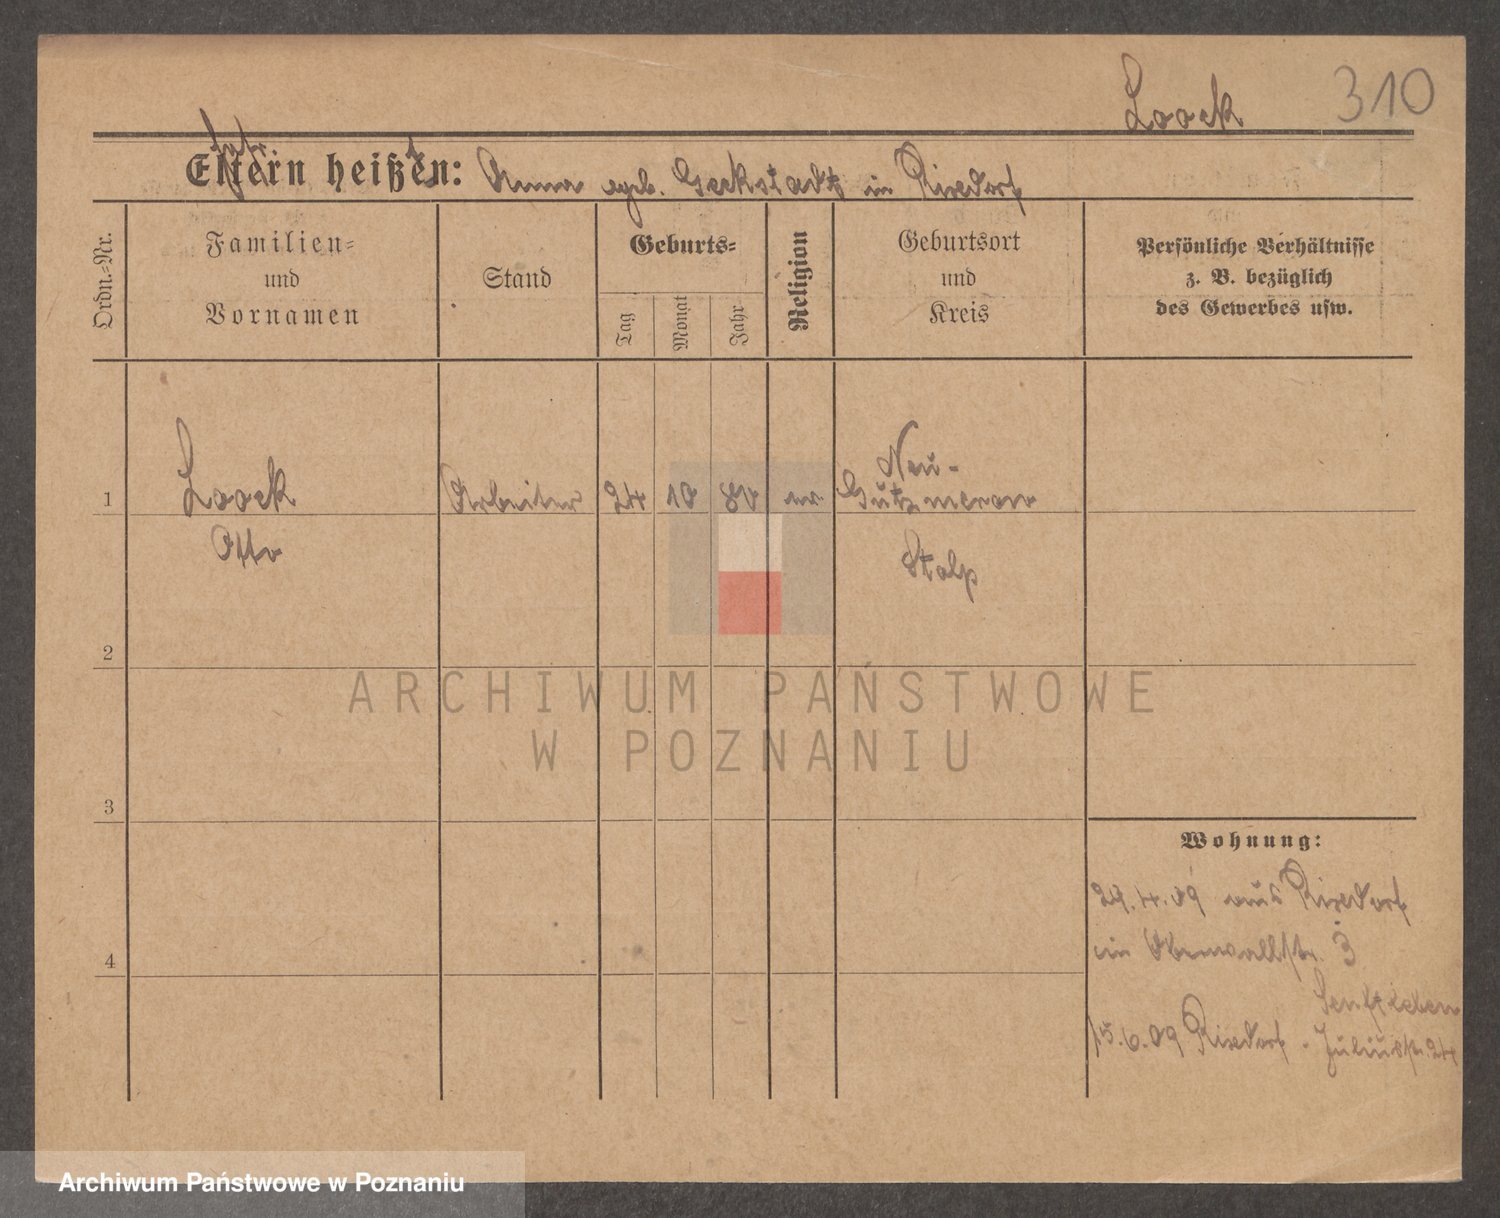 Loock 310
Eltern heißen: Anna geb. Geckstadt in Rixdorf
Ordn.-Nr.
Familien-
und
Vornamen
Stand
Geburts-
Tag
Monat
Jahr
Religion
Geburtsort
und
Kreis
Persönliche Verhältnisse
z. B. bezüglich
des Gewerbes usw.
1 Loock Arbeiter 24 10 80 ev. Neu-
Gutzmerow
Otto
Stolp
2
ARCHIWUM PAŃSTWOWE
W POZNANIU
3
Wohnung:
29.4.09 aus Rixdorf
in Oberwallstr. 3
4
Senftleben
15.6.09 Rixdorf - Juliusstr. 24
Archiwum Państwowe w Poznaniu